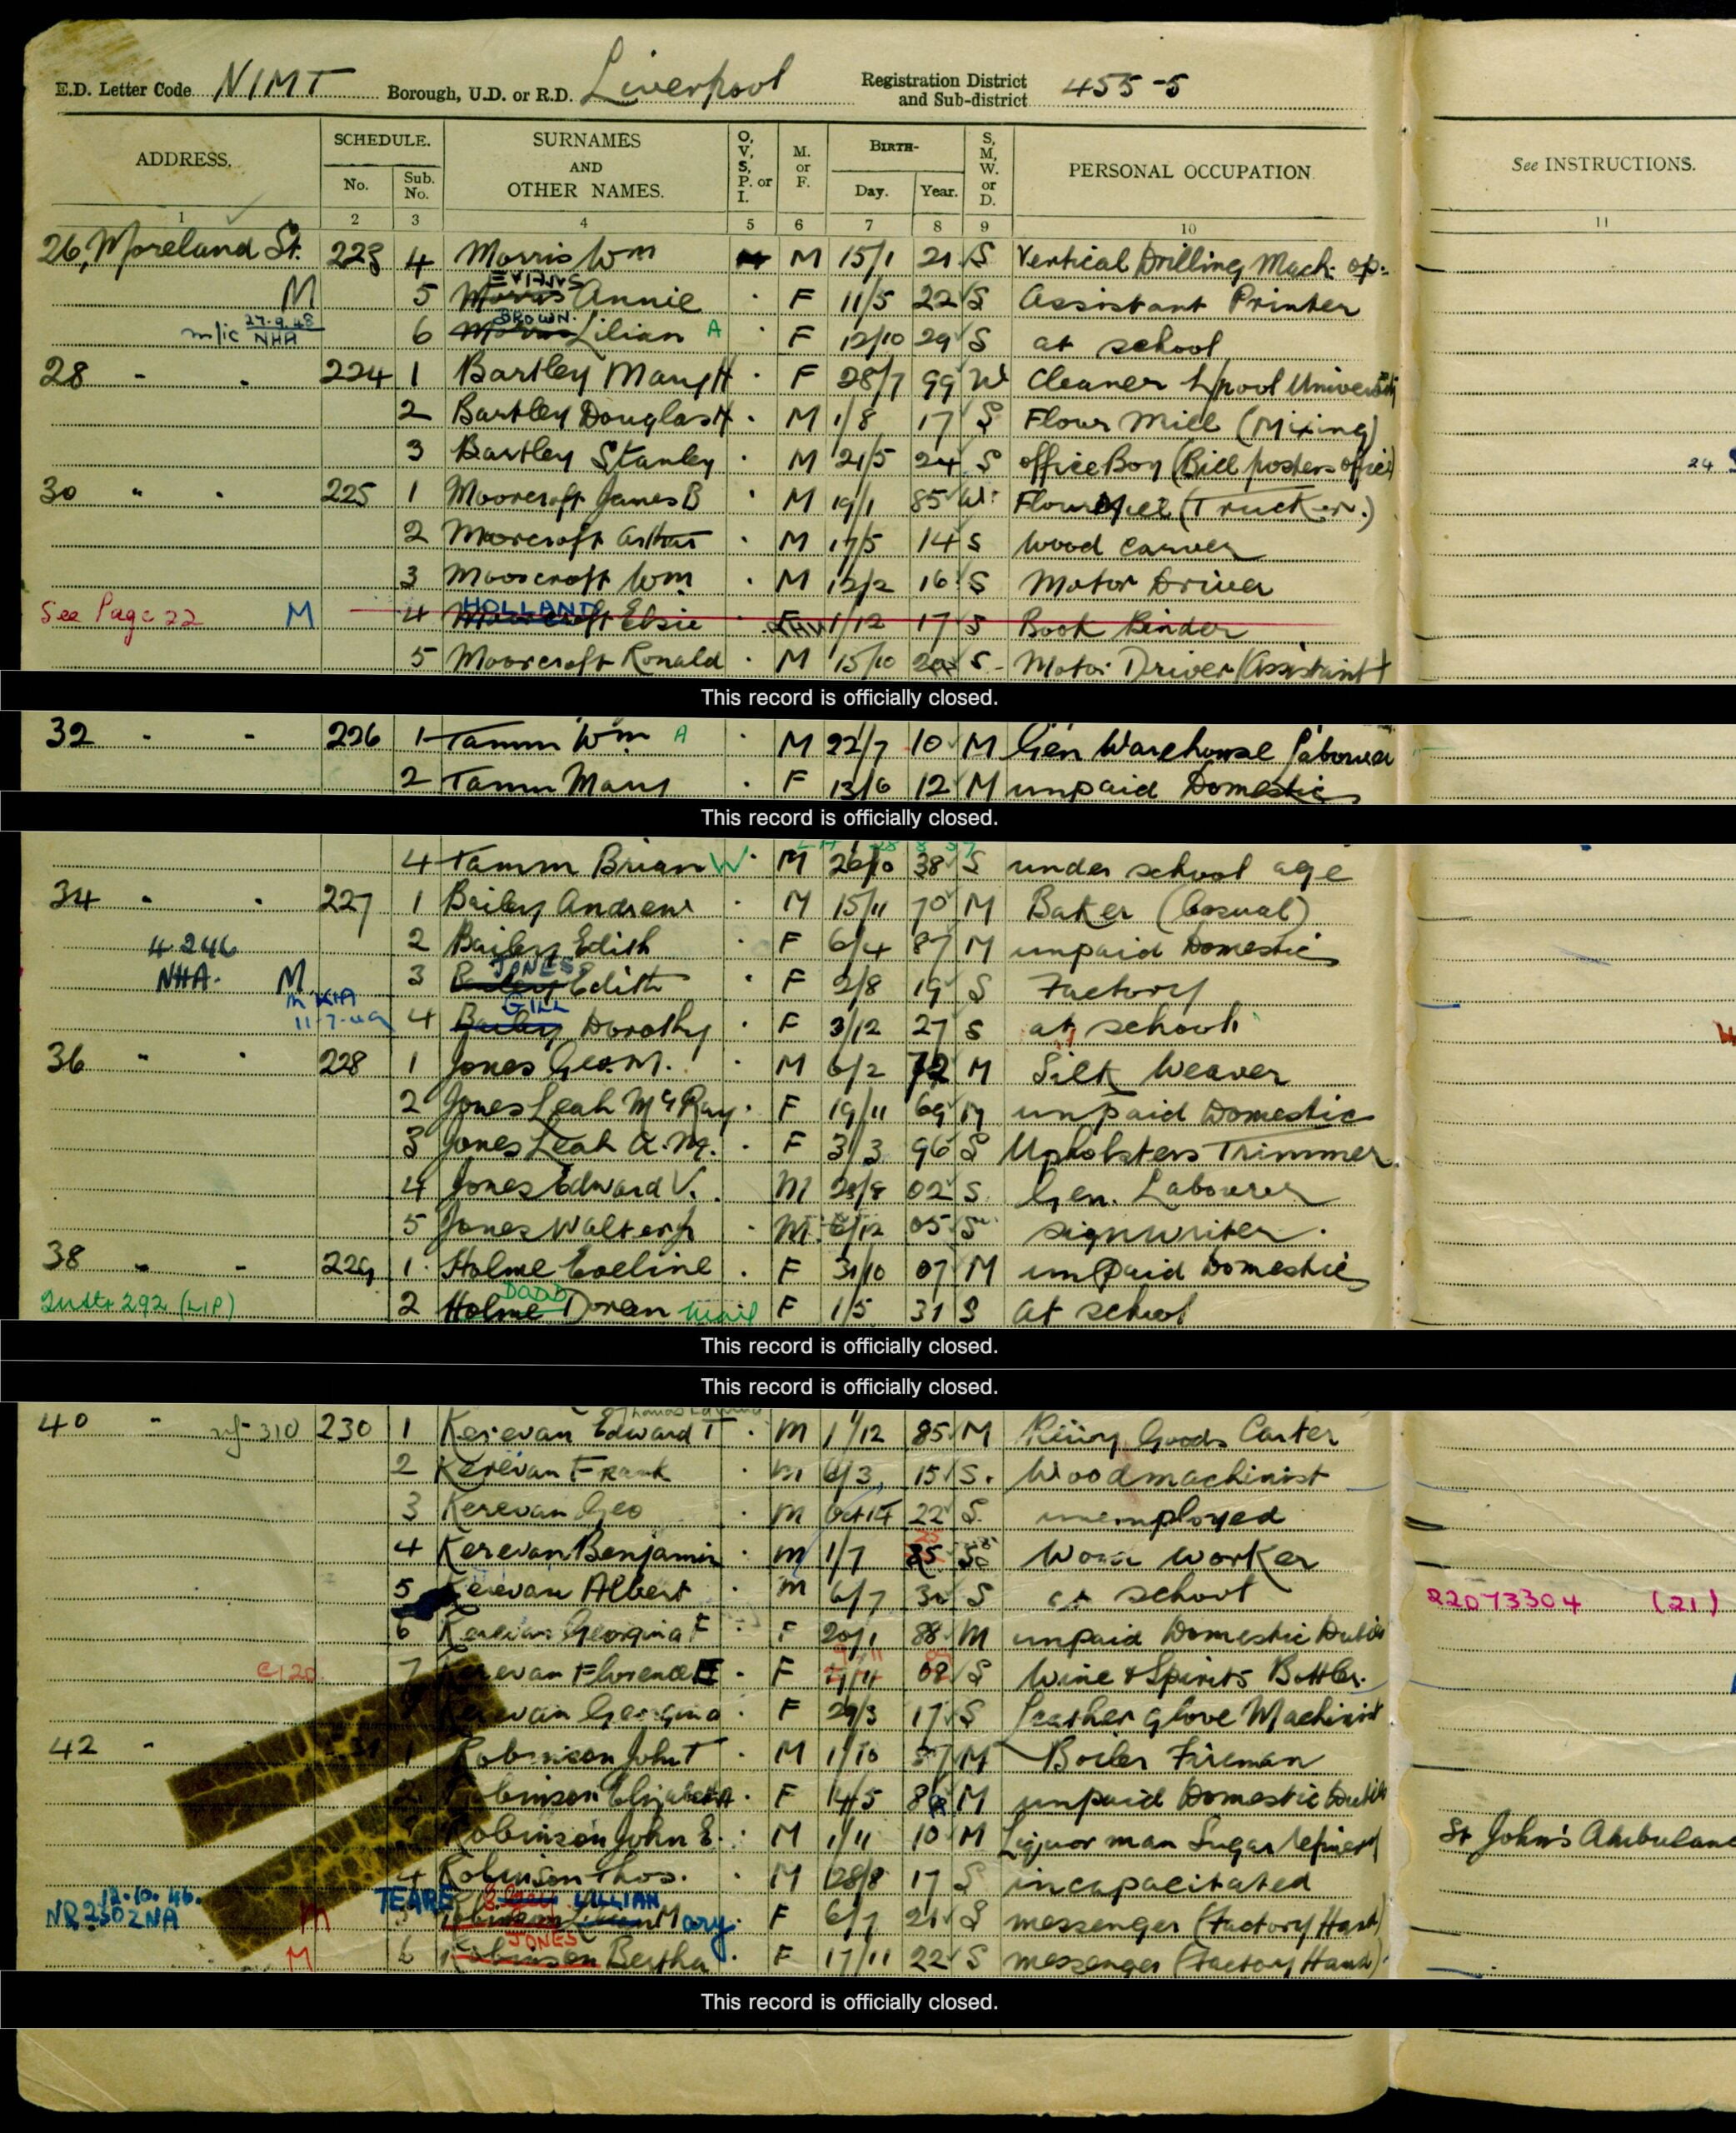 E.D. Letter Code NIMT Borough, U.D. or R.D. Liverpool Registration District and Sub-district 455-5
ADDRESS. SCHEDULE. No. Sub. No. SURNAMES AND OTHER NAMES. O, V, S, P. or I. M. or F. BIRTH- Day. Year. S, M, W. or D. PERSONAL OCCUPATION. See INSTRUCTIONS.
1 2 3 4 5 6 7 8 9 10 11
26, Moreland St. 223 4 Morris Wm M 15/1 21 S Vertical Drilling Mach. op.
EVANS
M 5 Morris Annie F 11/5 22 S Assistant Printer
BROWN.
m/ic 27.9.48 NHA 6 Morris Lilian A F 12/10 29 S at school
28 224 1 Bartley Mary H F 28/7 99 W Cleaner L/pool University
2 Bartley Douglas H M 1/8 17 S Flour Mill (Mixing)
3 Bartley Stanley M 21/5 24 S office Boy (Bill posters office) 24
30 " " 225 1 Moorcroft James B M 19/1 85 W Flour Mill (Trucker.)
2 Moorcroft Arthur M 17/5 14 S Wood Carver
3 Moorcroft Wm M 12/2 16 S Motor Driver
HOLLAND
See Page 22 M 4 Moorcroft Elsie 1/12 17 S Book Binder
5 Moorcroft Ronald M 15/10 20 S Motor Driver (Assistant)
This record is officially closed.
32 226 1 Tamm Wm A M 22/7 10 M Gen Warehouse Labourer
2 Tamm Mary F 13/6 12 M unpaid Domestic
This record is officially closed.
4 Tamm Brian W M 26/10 38 S under school age
34 227 1 Bailey Andrew M 15/11 70 M Baker (Casual)
4.246 2 Bailey Edith F 6/4 87 M unpaid Domestic
JONES
NHA. M 3 Bailey Edith F 2/8 19 S Factory
GILL
11-7-49 4 Bailey Dorothy F 3/12 27 S at school
36 " 228 1 Jones Geo. M. M 6/2 72 M Silk Weaver
2 Jones Leah McRay F 19/11 69 M unpaid Domestic
3 Jones Leah A. M. F 3/3 96 S Upholsters Trimmer
4 Jones Edward V. M 02 S Gen. Labourer
5 Jones Walter M 6/12 05 S signwriter.
38 229 1 Holme Eveline F 31/10 07 M unpaid Domestic
DODD
292 (LIP) 2 Holme Doreen F 1/5 31 S at school
This record is officially closed.
This record is officially closed.
40 310 230 1 Kerevan Edward T M 1/12 85 M Goods Carter
2 Kerevan Frank M 6/3 15 S. Woodmachinist
3 Kerevan Geo M 22 S. unemployed
4 Kerevan Benjamin M 1/7 25 worker
5 Kerevan Albert M 6/7 30 S at school 22073304 (21)
6 Kerevan Georgina F F 20/1 88 M unpaid Domestic Duties
7 Kerevan Florence E F 08 S Wine & Spirits Bottler.
Kerevan Georgina F 29/3 17 S Leather Glove Machinist
42 1 Robinson John T M 1/10 M Boiler Fireman
2 Robinson Elizabeth A F 14/5 M unpaid Domestic Duties
Robinson John E. M 1/11 10 M Liquor man Sugar refinery St John's Ambulance
4 Robinson Thos. M 28/8 17 S incapacitated
12.10.46. TEARE LILLIAN
NR2302NA M 5 Robinson Mary F 6/7 21 S messenger (Factory Hand)
JONES
M 6 Robinson Bertha F 17/11 22 S messenger (Factory Hand)
This record is officially closed.